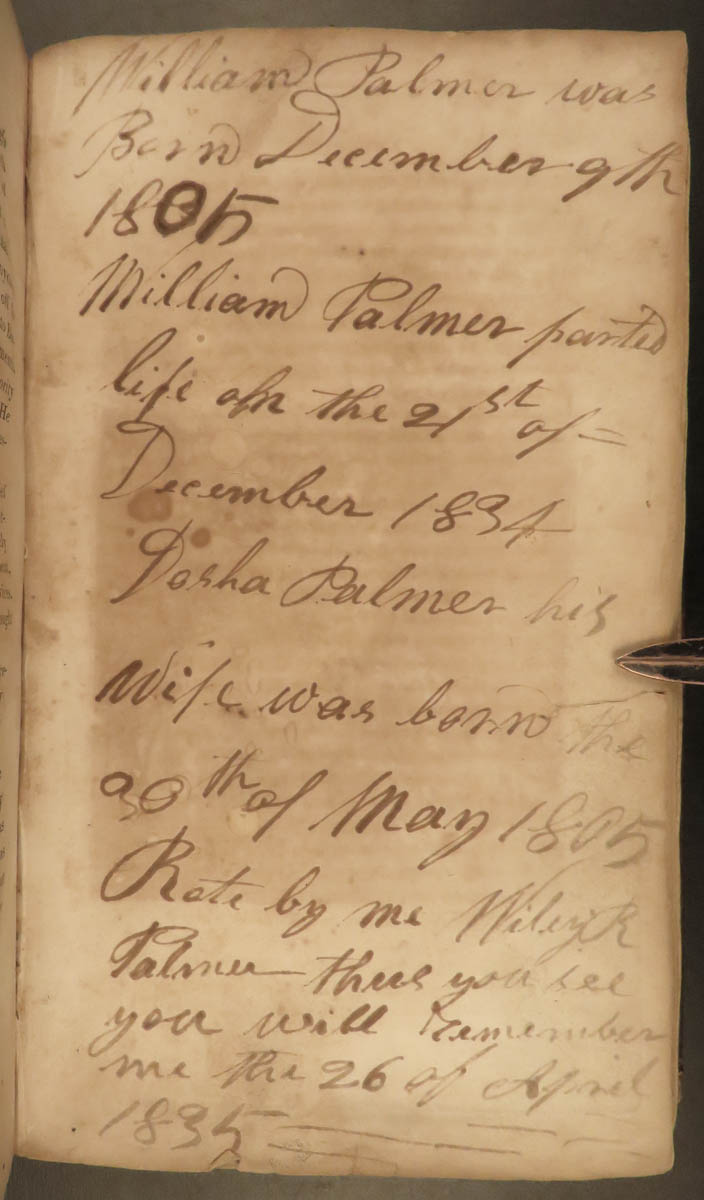 William Palmer was
Born December 9th
1805
William Palmer parted
life ofn the 21st of =
December 1834
Dosha Palmer his
Wife was born the
30th of May 1805
Rote by me Wiley R
Palmer thus you see
you will remember
me the 26 of April
1835